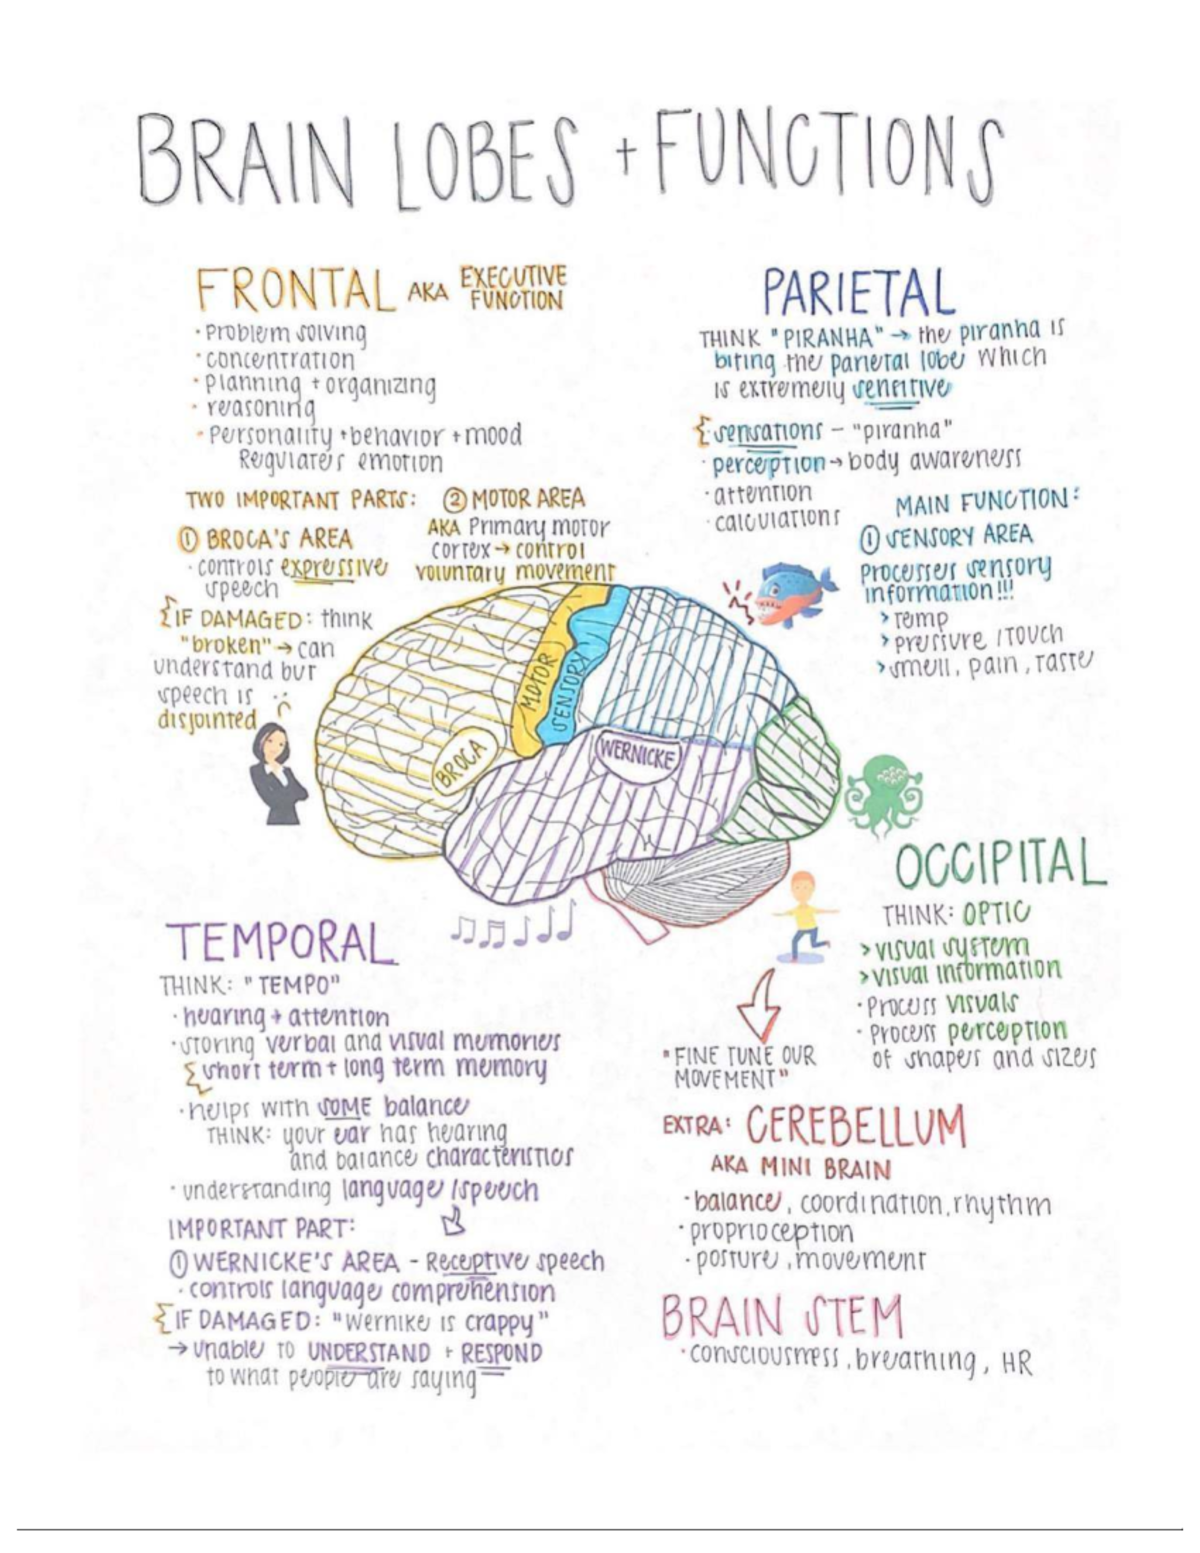 BRAIN LOBES + FUNCTIONS
FRONTAL AKA EXECUTIVE FUNCTION
· Problem solving
· concentration
· planning + organizing
· reasoning
· Personality + behavior + mood
Regulates emotion
TWO IMPORTANT PARTS:
① BROCA'S AREA
· controls expressive
speech
IF DAMAGED: think
"broken" → can
understand but
speech is
disjointed
② MOTOR AREA
AKA Primary motor
cortex → control
voluntary movement
PARIETAL
THINK "PIRANHA" → the piranha is
biting the parietal lobe which
is extremely sensitive
· sensations – "piranha"
· perception → body awareness
· attention
· calculations
MAIN FUNCTION:
① SENSORY AREA
Processes sensory
information!!!
> Temp
> pressure / Touch
> smell, pain, taste
MOTOR
SENSORY
BROCA
WERNICKE
OCCIPITAL
THINK: OPTIC
> visual system
> visual information
· Process visuals
· Process perception
of shapes and sizes
TEMPORAL
THINK: "TEMPO"
· hearing + attention
· storing verbal and visual memories
short term + long term memory
· helps with SOME balance
THINK: your ear has hearing
and balance characteristics
· understanding language / speech
IMPORTANT PART:
① WERNICKE'S AREA - Receptive speech
· controls language comprehension
IF DAMAGED: "Wernike is crappy"
→ unable to UNDERSTAND + RESPOND
to what people are saying
"FINE TUNE OUR
MOVEMENT"
EXTRA: CEREBELLUM
AKA MINI BRAIN
· balance, coordination, rhythm
· proprioception
· posture, movement
BRAIN STEM
· consciousness, breathing, HR